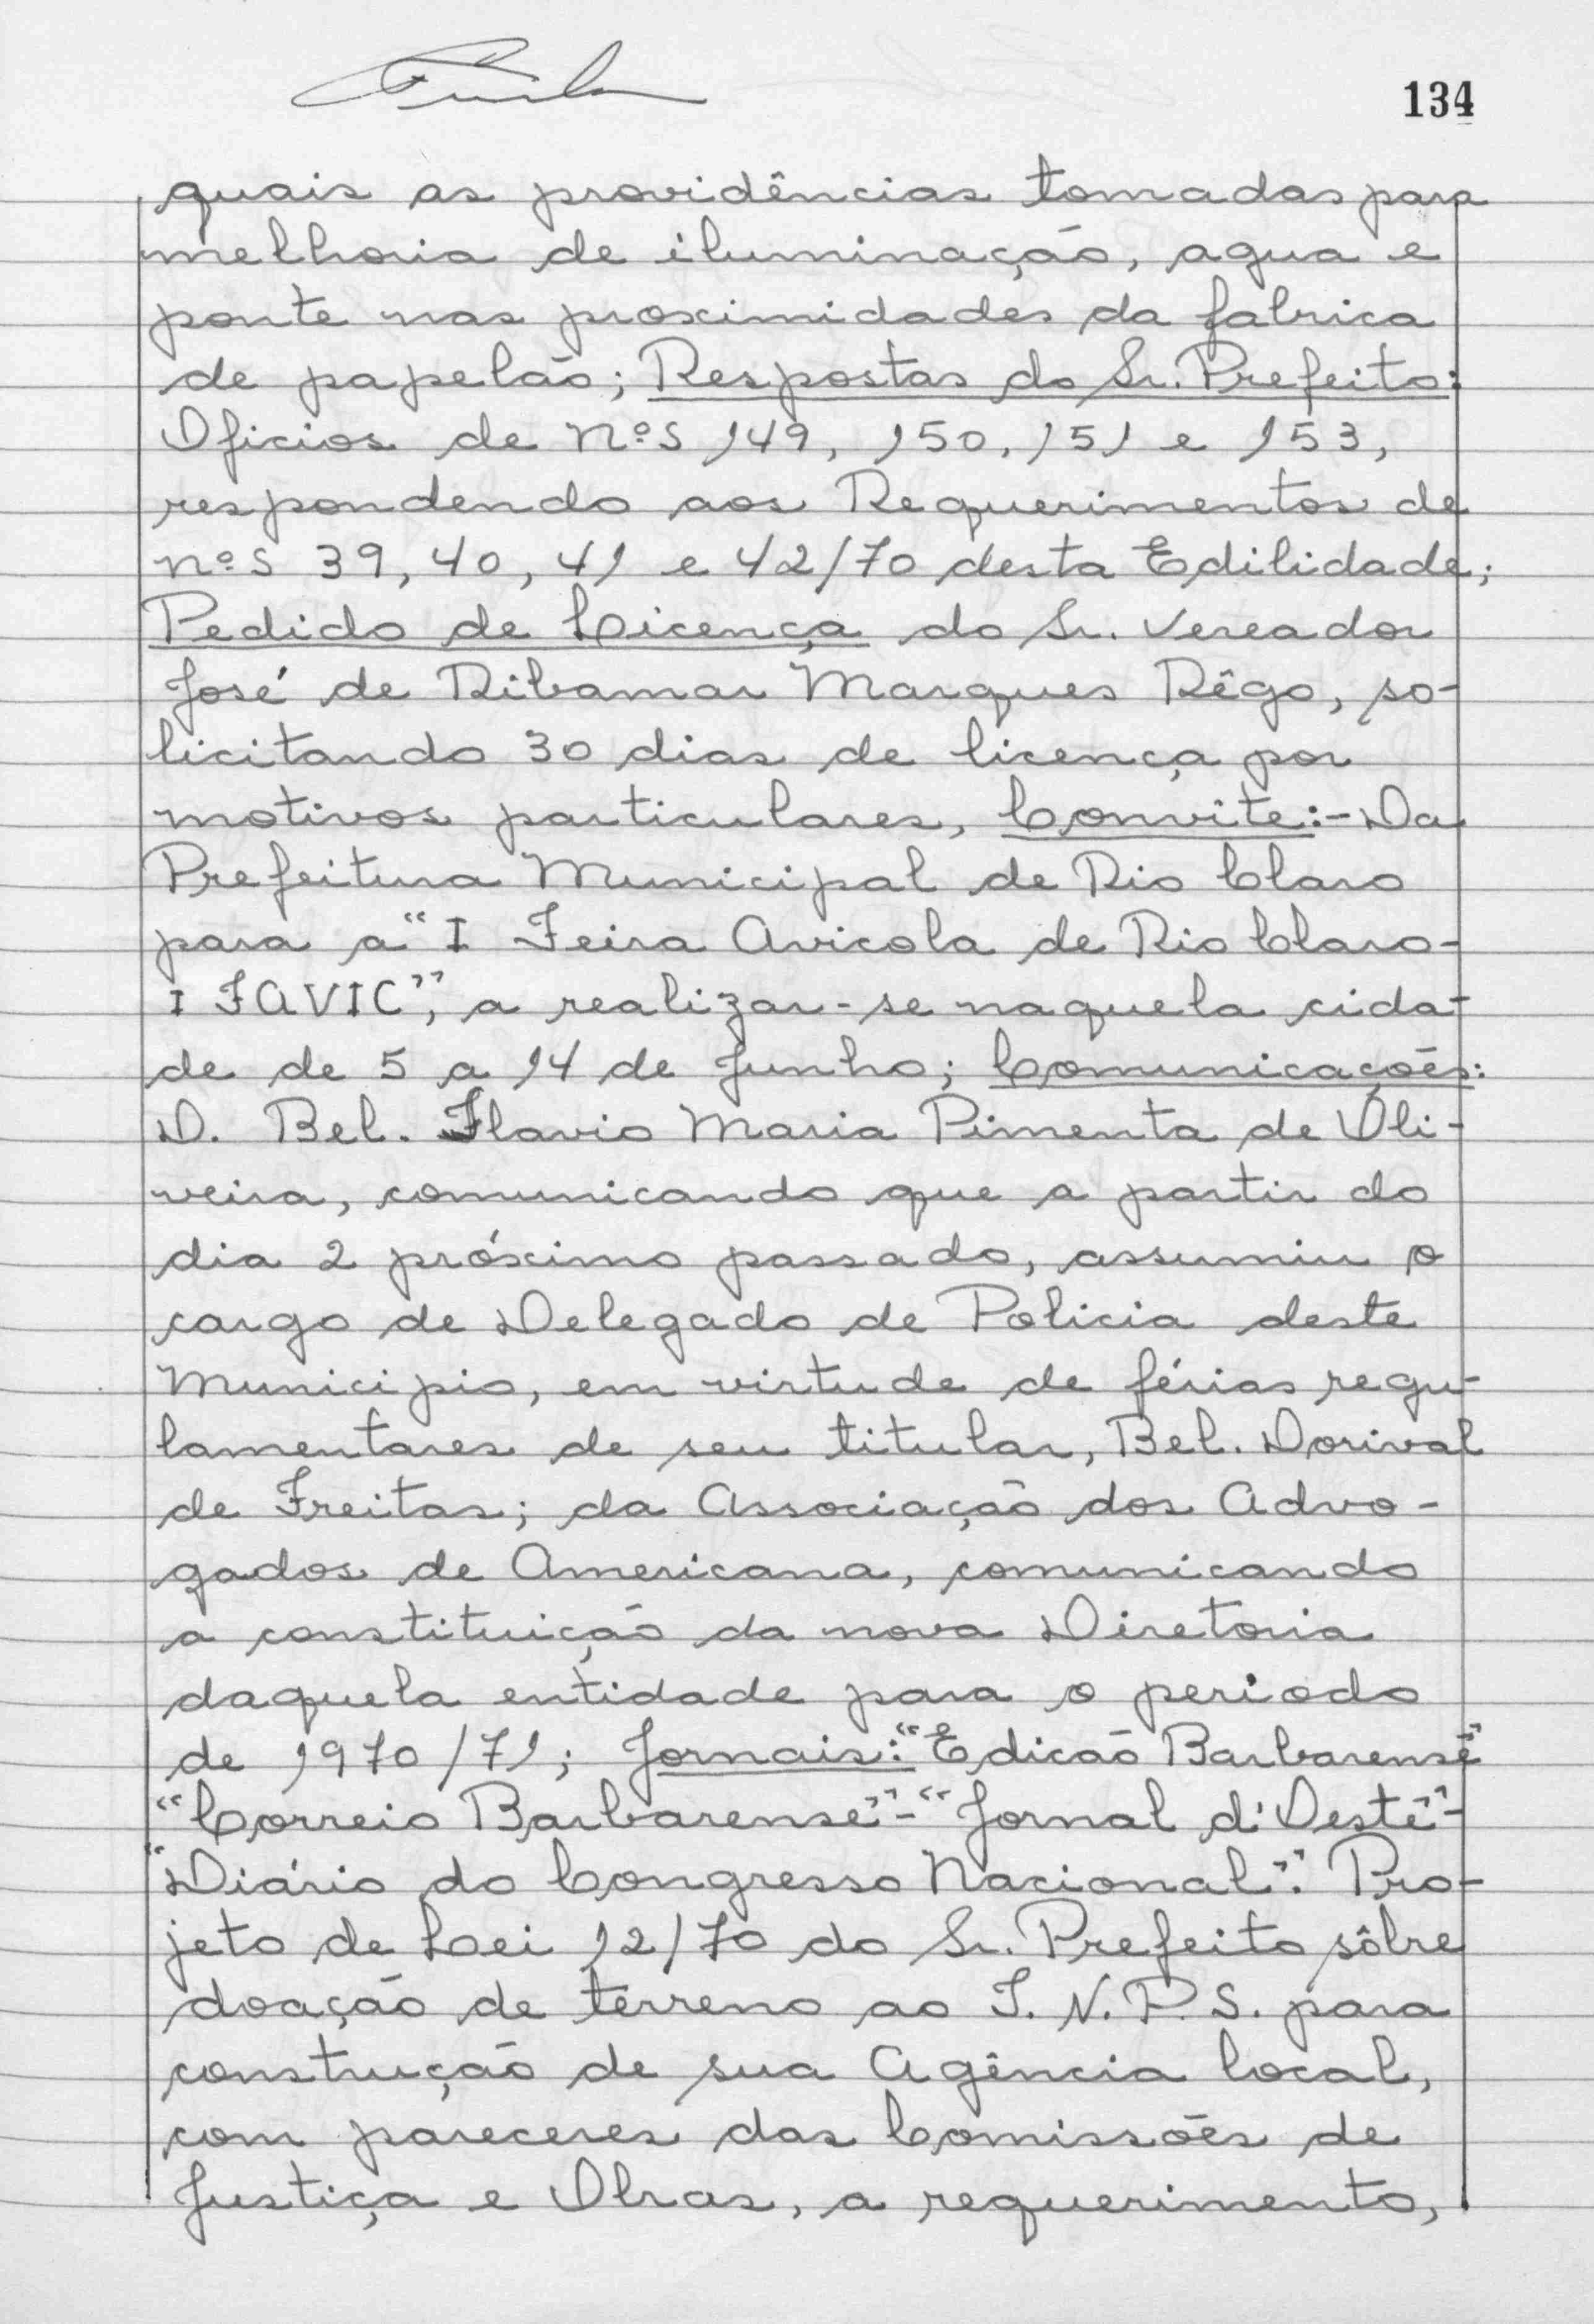 134
quais as providências tomadas para
melhoria de iluminação, agua e
ponte nas proximidades da fabrica
de papelão; Respostas do Sr. Prefeito:
Oficios de Nºs 149, 150, 151 e 153,
respondendo aos Requerimentos de
nºs 39, 40, 41 e 42/70 desta Edilidade;
Pedido de Licença do Sr. Vereador
José de Ribamar Marques Rêgo, so-
licitando 30 dias de licença por
motivos particulares, Convite:- Da
Prefeitura Municipal de Rio Claro
para a "I Feira Avicola de Rio Claro-
I FAVIC", a realizar-se naquela cida-
de de 5 a 14 de Junho; Comunicações:
D. Bel. Flavio Maria Pimenta de Oli-
veira, comunicando que a partir do
dia 2 próximo passado, assumiu o
cargo de Delegado de Policia deste
Municipio, em virtude de férias regu-
lamentares de seu titular, Bel. Dorival
de Freitas; da Associação dos Advo-
gados de Americana, comunicando
a constituição da nova Diretoria
daquela entidade para o periodo
de 1970/71; Jornais: "Edicão Barbarense"
"Correio Barbarense"-"Jornal d'Oeste"-
"Diário do Congresso Nacional". Pro-
jeto de Lei 12/70 do Sr. Prefeito sôbre
doação de terreno ao I.N.P.S. para
construção de sua Agência local,
com pareceres das Comissões de
Justiça e Obras, a requerimento,